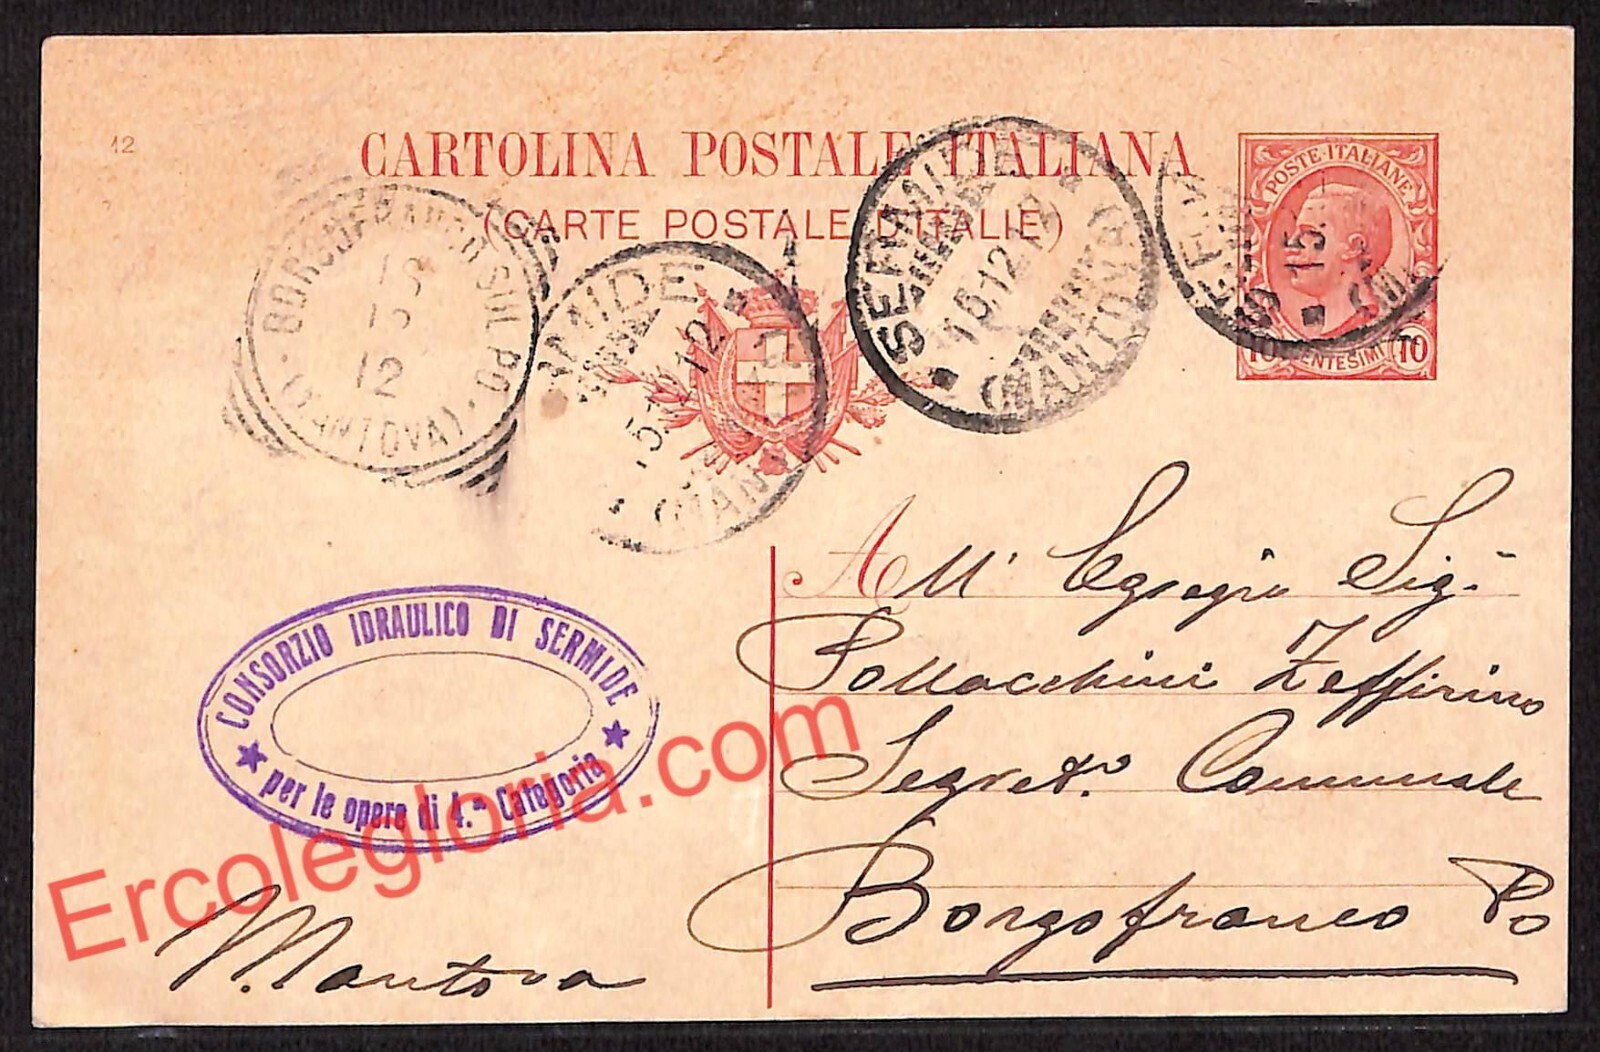 12
CARTOLINA POSTALE ITALIANA
(CARTE POSTALE D'ITALIE)
POSTE·ITALIANE
10 CENTESIMI 10
SERMIDE
15.12.12
(MANTOVA)
SUL PO
(MANTOVA)
12
CONSORZIO IDRAULICO DI SERMIDE
per le opere di 4.ª Categoria
All' Egregio Sig.
Pollacchini Zeffirino
Segret.º Comunale
Borgofranco Po
Mantova
Ercolegloria.com